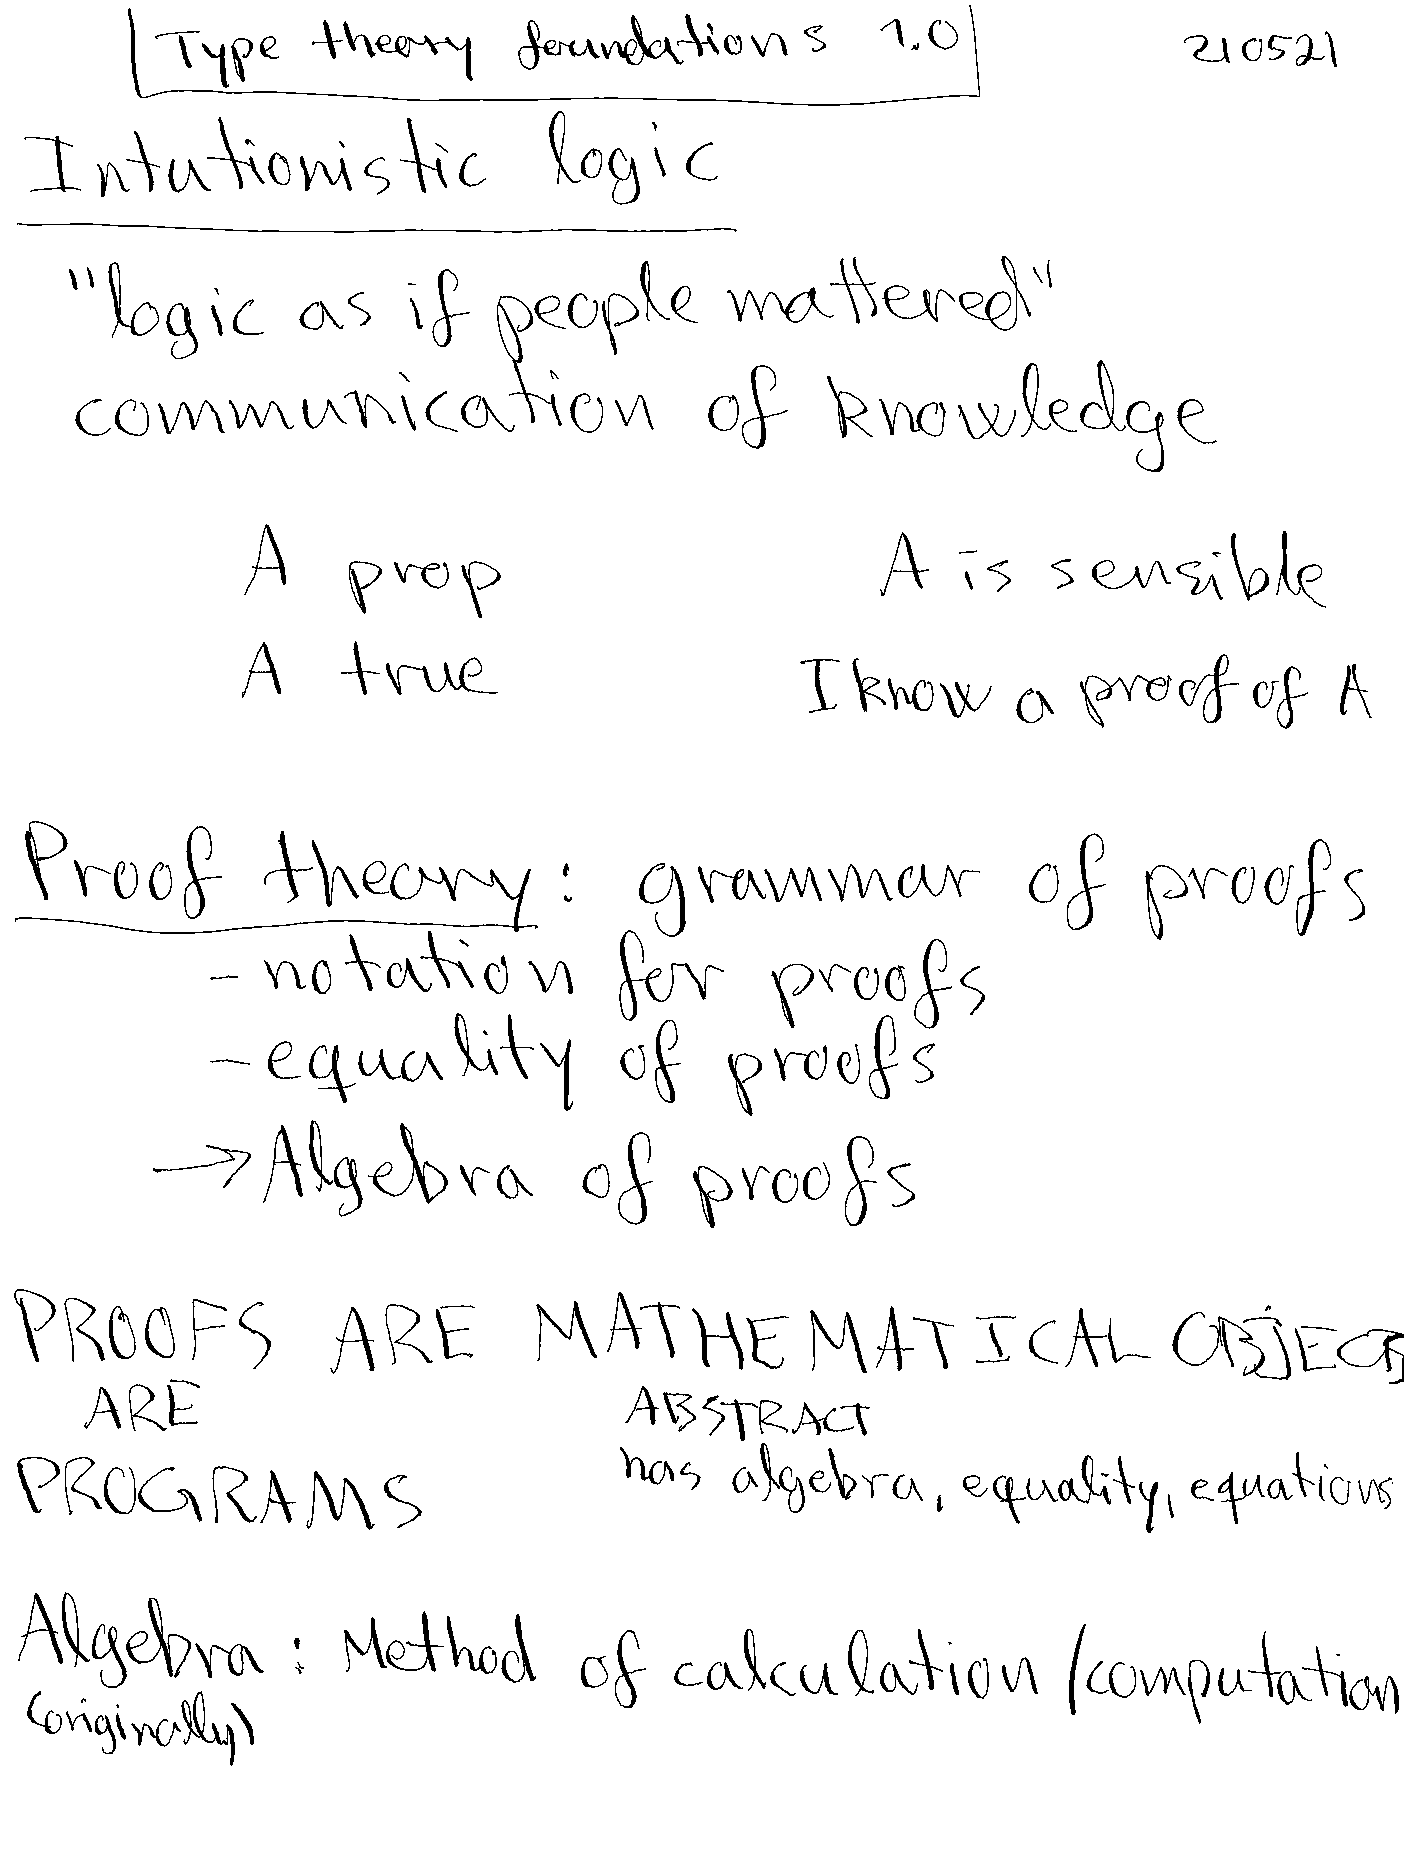 Type theory foundations 1.0 210521
Intutionistic logic
"logic as if people mattered"
communication of knowledge
A prop A is sensible
A true I know a proof of A
Proof theory: grammar of proofs
- notation for proofs
- equality of proofs
→ Algebra of proofs
PROOFS ARE MATHEMATICAL OBJECTS
ARE ABSTRACT
PROGRAMS has algebra, equality, equations
Algebra : Method of calculation /computation
(originally)